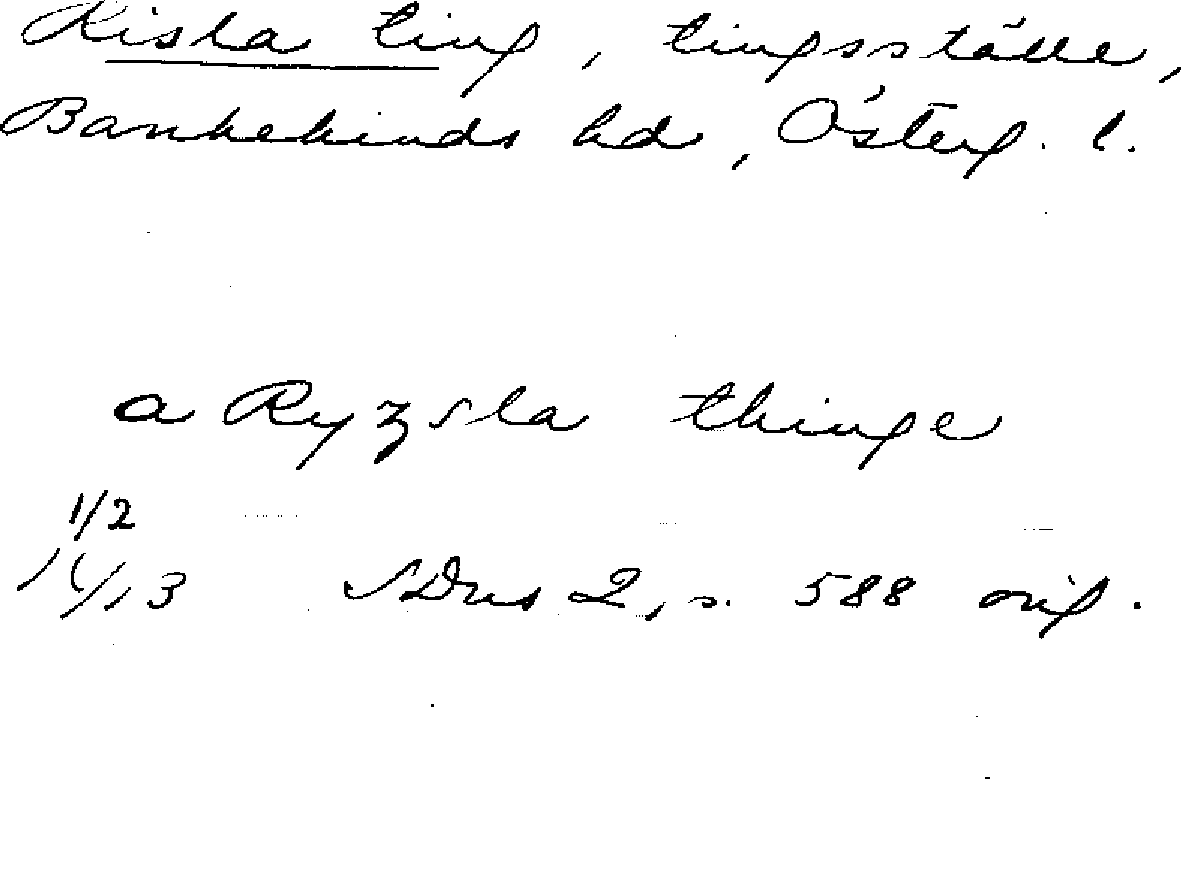 Risla ting, tingsställe,
Bankekinds hd, Österg. l.
a Ryzsla thinge
1/2
1413 SDns 2, s. 588 orig.